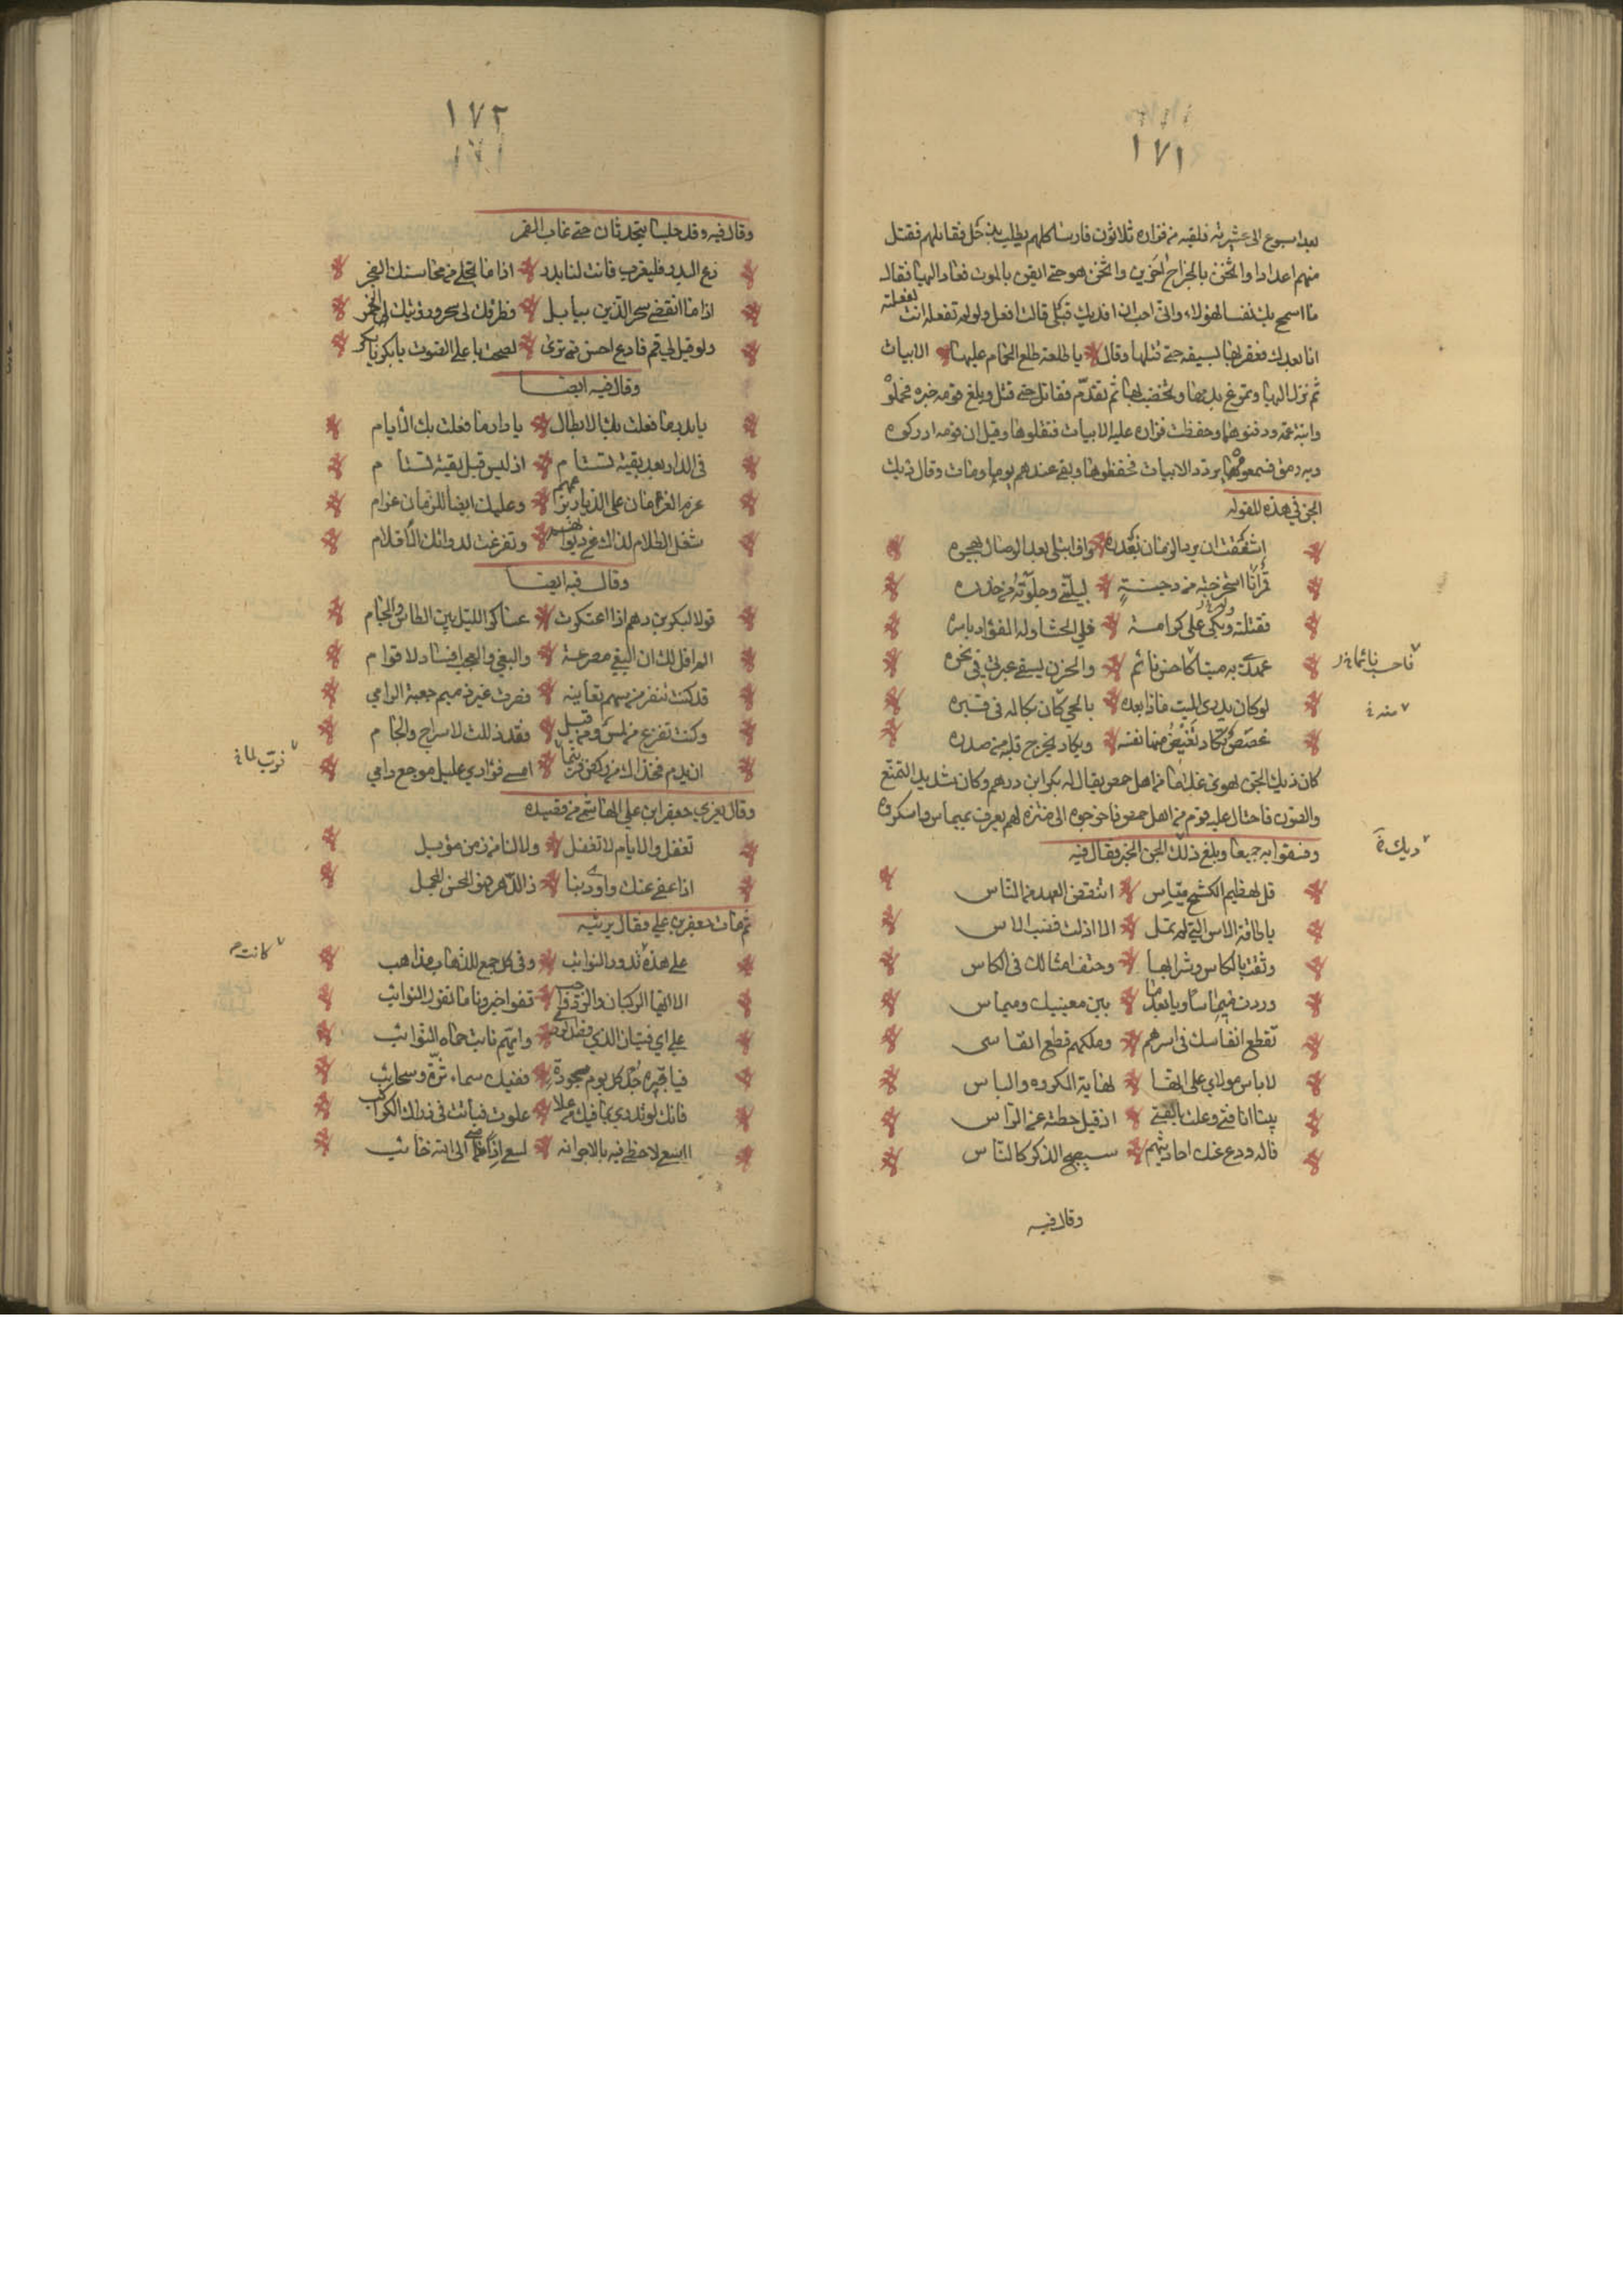 ١٧١
بعد اسبوع الى عشيرته فلقيه من فزاره ثلاثون فارسا كلهم يطلب بذحل فقاتلهم فقتل
منهم اعدادا واثخن بالجراح اخرين واثخن هو حتى ايقن بالموت فعاد اليها فقال
ما اسمح بك نفسا لهؤلاء واني احب ان اقدمك قبلي قالت افعل ولو لم تفعله انت لفعلته
انا بعدك فضربها بسيفه حتى قتلها وقال يا طلعة طلع الحمام عليها الابيات
ثم نزل اليها وتمرغ بدمها وتخضب بها ثم تقدم فقاتل حتى قتل وبلغ قومه خبره فحملوه
وابنة عمه ودفنوهما وحفظت فزاره عليه الابيات فنقلوها وقيل ان قومه ادركوه
وبه رمق فسمعوه يردد الابيات فحفظوها وبقي عندهم يوما ومات وقال ديك
الجن في هذه المقوله
اشفقت ان يرد الزمان بغدره او ابتلى بعد الوصال بهجره
قمر انا استخرجته من دجنة لبليتي وجلوته من خدره
فقتلته وبكى علي كرامة فلي الحشا وله الفؤاد باسره
عهدي به ميتا كاحسن نائم والحزن يسفح عبرتي في نحره
لو كان يدري الميت ماذا بعده بالحي كان بكا له في قبره
غصص تكاد تغيض منها نفسه ويكاد يخرج قلبه من صدره
كان ديك الجن يهوى غلاما من اهل حمص يقال له بكر ابن درهم وكان شديد التمنع
والصون فاحتال عليه قوم من اهل حمص فاخرجوه الى متنزه لهم يعرف بميماس واسكروه
وفسقوا به جميعا وبلغ ذلك ديك الجن الخبر فقال فيه
قل لهضيم الكشح مياس انتقض العهد من الناس
يا طاقة الاس التي لم تمل الا اذلت قضب الاس
وثقت بالكاس وشرابها وحتف امثالك في الكاس
وردت ميماسا ويا بعد ما بين مغيثيك وميماس
تقطع انفاسك في اسرهم وملكهم قطع انفاسي
لا باس مولاي على انها نهاية المكروه والباس
بينا انا فتى وعلت بالفتى اذ قيل حطته عن الراس
فاله ودع عنك احاديثهم سيصبح الذاكر كالناس
وقال فيه
١٧٢
وقال فيه وقد جلسا يتحدثان حتى غاب القمر
دع البدر فليغرب فانت لنا بدر اذا ما تجلى من محاسنك الفجر
اذا ما انقضى سحر الذين ببابل فطرفك لي سحر وريقك لي خمر
ولو قيل لي قم فادع احسن من ترى لصحت باعلى الصوت يا بكر يا بكر
وقال فيه ايضا
يا بدر ما فعلت بك الابطال يا دار ما فعلت بك الأيام
في الدار بعد بقية نستام اذ ليس فيك بقية تستام
عرم الزمان على الديار برغمهم وعليك ايضا للزمان عرام
شغل الظلام كراك في ديوانهم وتفرغت لدواتك الأقلام
وقال فيه ايضا
قولا لبكر بن دهم اذا اعتكرت عساكر الليل بين الطاس والجام
الم اقل لك ان البغي مصرعة والبغي والعجب افساد لاقوام
قد كنت تنفر من سهم تعاينه فصرت غير رميم جعبة الرامي
وكنت تفزع من لمس ومن قبل فقد ذللت لاسراج والجام
ان يدم فخذاك من ركض فربتما امسى فؤادي عليك موجع دامي
وقال يعزي جعفر ابن علي الهاشمي من قصيده
تغفل والايام لا تغفل ولا لنا من زمن موئل
اذا عفى عنك واودى بنا ذا الدهر فهو المحسن المجمل
ثم مات جعفر بن علي فقال يرثيه
على هذه تدور النوائب وفي كل جمع للذهاب مذاهب
الا ايها الركبان والرد واجب قفوا خبرونا ما تقول النوائب
على اي فتيان الندى فضل الردى وايهم نابت حماه النوائب
فيا قبره جد كل يوم بجوده ففيك سماء ثرة وسحائب
فانك لو تدري بما فيك من علا علوت فباتت في ذراك الكواكب